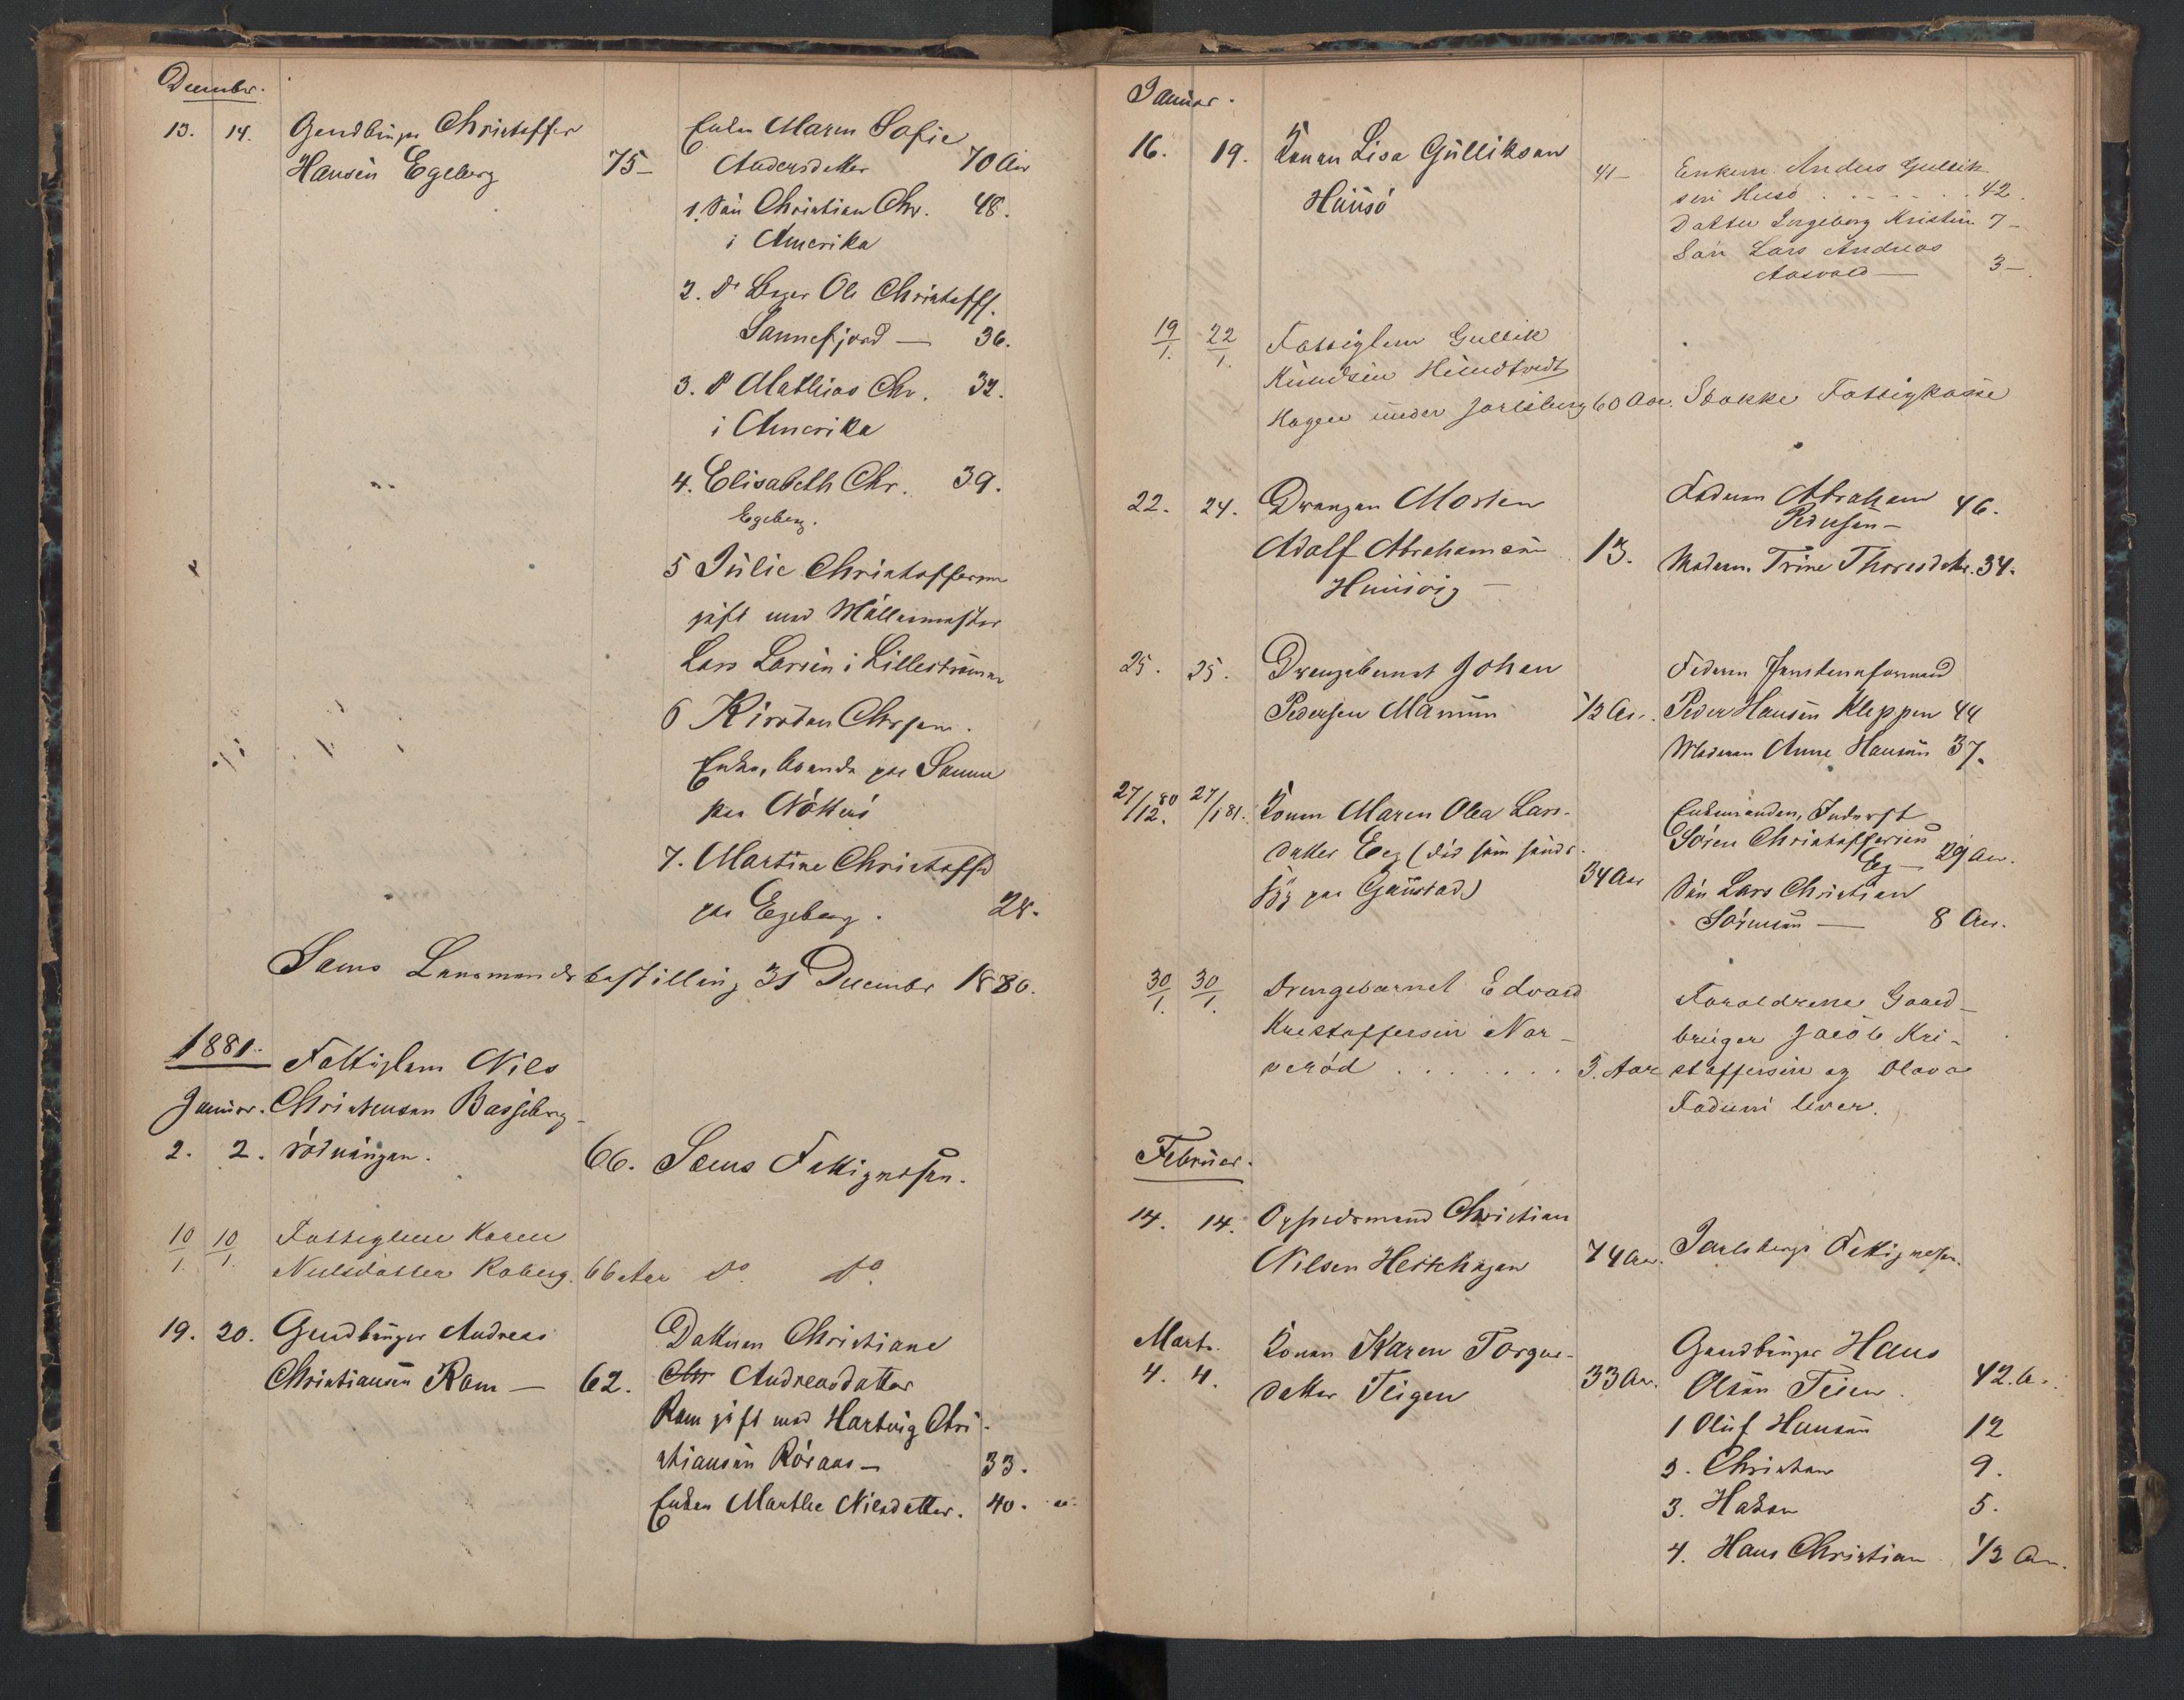 December.
13. 14. Gaardbruger Christoffer
Hansen Egeberg 75 –
Enken Maren Sofie
Andersdatter 70 Aar
1. Søn Christian Chr. 48.
i Amerika
2. do Ole Christoff.
Sannefjord — 36.
3. do Mathias Chr. 32.
i Amerika
4. Elisabeth Chr. 39.
Egeberg.
5 Julie Christoffersen
gift med Møllermester
Lars Larsen i Lillestrømmen
6 Kirsten Chrsen.
Enke, boende paa
paa Nøtterø
7. Martine Christoffd
paa Egeberg. 28.
Sems Lensmandsbestilling 31 December 1880.
1881. Fattiglem Nils
Januar. Christensen Bassebergrødningen.
2. 2. 66. Sems Fattigvæsen.
10/1. 10/1. Fattiglem Karen
Nilsdatter Roberg. 66 Aar do do
19. 20. Gaardbruger Andreas
Christiansen Ram — 62.
Datteren Christiane
Chr Andreasdatter
Ram gift med Hartvig Chri-
stiansen Røraas — 33.
Enken Marthe Nilsdatter. 40.
Januar.
16. 19. Konen Lisa Gulliksen
Husø 41 –
Enkem. Anders Gullik
sen Husø . . . . . . 42.
Datter Ingeborg Kristine 7 –
Søn Lars Andreas
Aasvald — 3 –
19/1. 22/1. Fattiglem Gullik
Knudsen Hundtvedt
Hagen under Jarlsberg 60 Aar. Stokke Fattigkasse
22. 24. Drengen Morten
Adolf Abrahamsen 13.
Husvig —
Faderen Abraham
Pedersen – 46.
Moderen Trine Thoresdatr. 34.
25. 25. Drengebarnet Johan
Pedersen 1/2 Aar.
Faderen
Peder Hansen Kleppen 44
Moderen Anne Hansen 37.
27/12.80 27/1 81. Konen Maren Olea Lars-
datter Eeg (død som sinds-
syg paa Gaustad) 34 Aar
Enkemanden, Inderst
Søren Christoffersen
Eeg — 29 Aar.
Søn Lars Christian
Sørensen — 8 Aar.
30/1. 30/1. Drengebarnet Edvard
Kristoffersen Nar-
verød . . . . . . . 3. Aar
Foraldrene Gaard-
bruger Jacob Kri-
stoffersen og Olava
Faderen lever.
Februar.
14. 14. Opsidsmand Christian
Nilsen Heskhagen 74 Aar. Jarlsbergs Fattigvæsen.
Marts.
4. 4. Konen Karen Torgers-
datter Teigen 33 Aar.
Gaardbruger Hans
Olsen Teien 42. A.
1 Oluf Hansen 12
2. Christian 9.
3. Hakon 5.
4. Hans Christian 1/2 Aar.